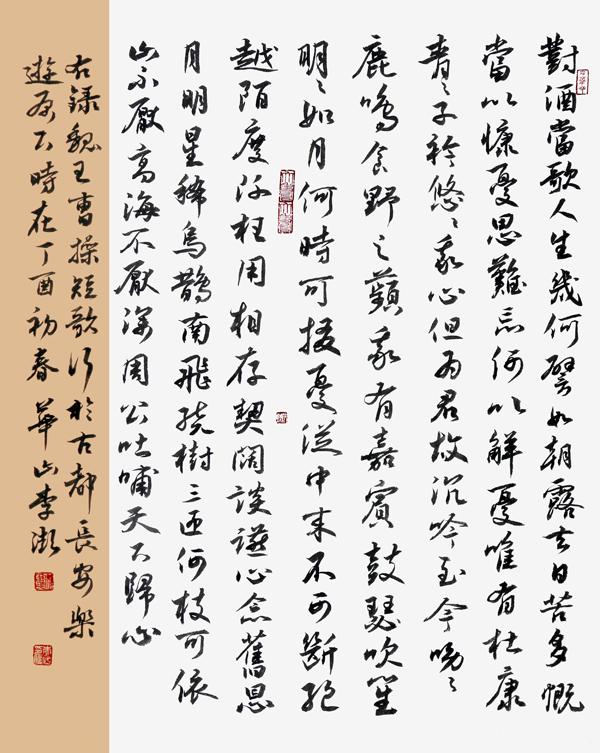 對酒當歌人生幾何譬如朝露去日苦多慨
當以慷憂思難忘何以解憂唯有杜康
青〻子衿悠〻我心但為君故沉吟至今呦〻
鹿鳴食野之蘋我有嘉賓鼓瑟吹笙
明〻如月何時可掇憂從中來不可斷絕
越陌度阡枉用相存契闊談讌心念舊恩
月明星稀烏鵲南飛繞樹三匝何枝可依
山不厭高海不厭深周公吐哺天下歸心
右錄魏王曹操短歌行於古都長安樂
遊原下時在丁酉初春華山李